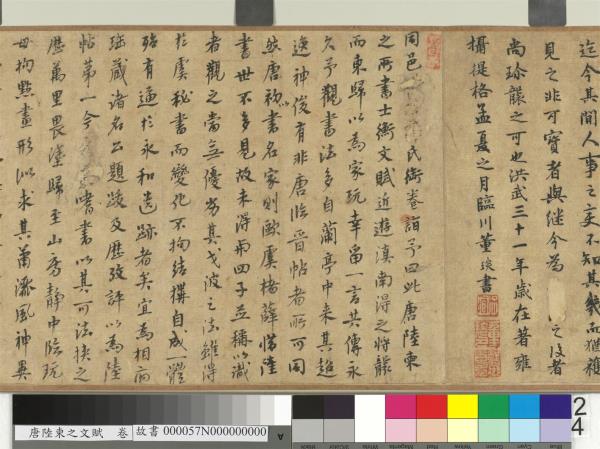 迄今其間人事之變不知其幾而猶獲
見之非可寶者與繼今為
之後者
尚珍襲之可也洪武三十一年歲在著雍
攝提格孟夏之月臨川董 書
同邑 氏衛卷詣予曰此唐陸東
之所書士衡文賦近遊滇南得之將襲
而東歸以為家玩幸留一言其傳永
久予觀書法多自蘭亭中來其超
逸神俊有非唐臨晉帖者所可同
然唐初書名家則歐虞褚薛惜陸
書世不多見故未得與四子並稱以識
者觀之當無優劣其戈波之法雖得
於虞秘書而變化不拘結構自成一體
殆有逼於永和遺跡者矣宜為相府
珍藏諸名公題跋及歷攷評以為陸
帖第一今 嗜書以其可法挾之
歷萬里畏塗歸至山房靜中臨玩
毋拘點畫形似求其蕭
風神異
唐陸東之文賦 卷
故書 000057N000000000
A
24